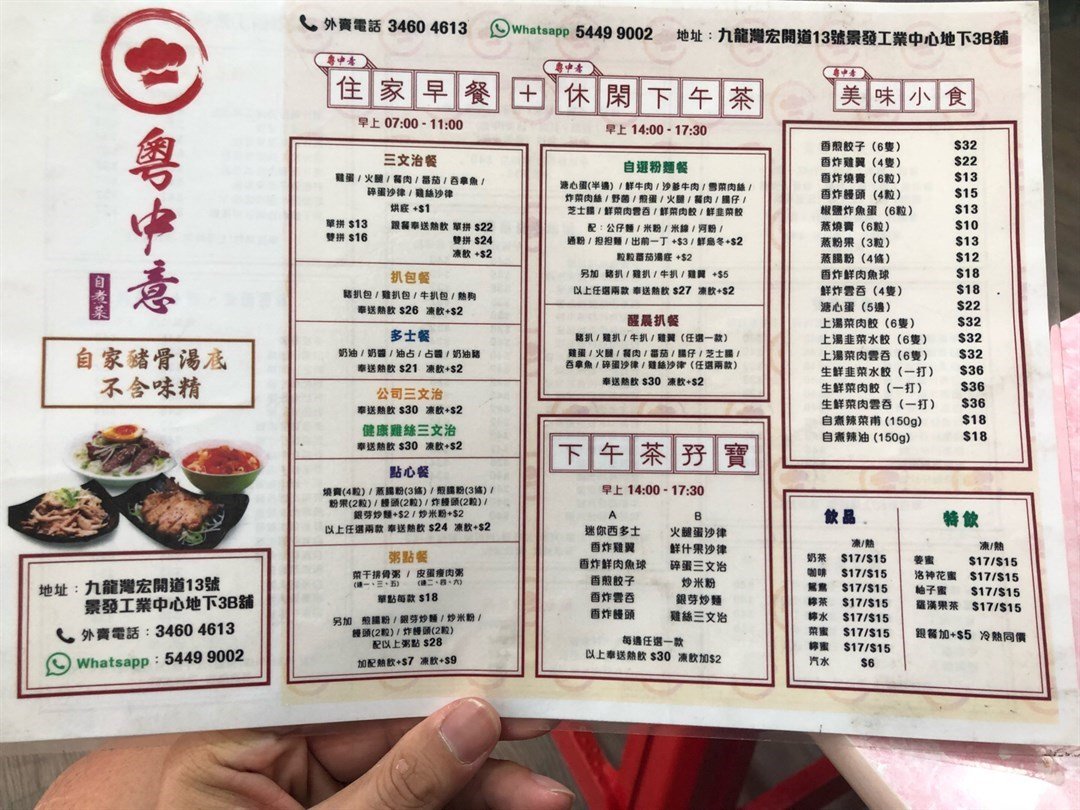 粵中意
自煮菜
自家豬骨湯底
不含味精
地址：九龍灣宏開道13號
景發工業中心地下3B舖
外賣電話：3460 4613
Whatsapp：5449 9002
外賣電話 3460 4613 Whatsapp 5449 9002 地址：九龍灣宏開道13號景發工業中心地下3B舖
粵中意
住家早餐
早上 07:00 - 11:00
+
粵中意
休閑下午茶
早上 14:00 - 17:30
三文治餐
雞蛋 / 火腿 / 餐肉 / 番茄 / 吞拿魚 /
碎蛋沙律 / 雞絲沙律
烘底 +$1
單拼 $13 跟餐奉送熱飲 單拼 $22
雙拼 $16 雙拼 $24
凍飲 +$2
扒包餐
豬扒包 / 雞扒包 / 牛扒包 / 熱狗
奉送熱飲 $26 凍飲+$2
多士餐
奶油 / 奶醬 / 油占 / 占醬 / 奶油豬
奉送熱飲 $21 凍飲+$2
公司三文治
奉送熱飲 $30 凍飲+$2
健康雞絲三文治
奉送熱飲 $30 凍飲+$2
點心餐
燒賣(4粒) / 蒸腸粉(3條) / 煎腸粉(3條) /
粉果(2粒) / 饅頭(2粒) / 炸饅頭(2粒) /
銀芽炒麵+$2 / 炒米粉+$2
以上任選兩款 奉送熱飲 $24 凍飲+$2
粥點餐
菜干排骨粥 / 皮蛋瘦肉粥
(逢一、三、五) (逢二、四、六)
單點每款 $18
另加 煎腸粉 / 銀芽炒麵 / 炒米粉 /
饅頭(2粒) / 炸饅頭(2粒)
配以上粥點 $28
加配熱飲+$7 凍飲+$9
自選粉麵餐
溏心蛋(半邊) / 鮮牛肉 / 沙爹牛肉 / 雪菜肉絲 /
炸菜肉絲 / 野菌 / 煎蛋 / 火腿 / 餐肉 / 腸仔 /
芝士腸 / 鮮菜肉雲吞 / 鮮菜肉餃 / 鮮韭菜餃
配：公仔麵 / 米粉 / 米線 / 河粉 /
通粉 / 担担麵 / 出前一丁 +$3 / 鮮烏冬+$2
粒粒番茄湯底 +$2
另加 豬扒 / 雞扒 / 牛扒 / 雞翼 +$5
以上任選兩款 奉送熱飲 $27 凍飲+$2
醒晨扒餐
豬扒 / 雞扒 / 牛扒 / 雞翼（任選一款）
雞蛋 / 火腿 / 餐肉 / 番茄 / 腸仔 / 芝士腸 /
吞拿魚 / 碎蛋沙律 / 雞絲沙律（任選兩款）
奉送熱飲 $30 凍飲+$2
下午茶孖寶
早上 14:00 - 17:30
A B
迷你西多士 火腿蛋沙律
香炸雞翼 鮮什果沙律
香炸鮮肉魚球 碎蛋三文治
香煎餃子 炒米粉
香炸雲吞 銀芽炒麵
香炸饅頭 雞絲三文治
每邊任選一款
以上奉送熱飲 $30 凍飲加$2
粵中意
美味小食
香煎餃子（6隻） $32
香炸雞翼（4隻） $22
香炸燒賣（6粒） $13
香炸饅頭（4粒） $15
椒鹽炸魚蛋（6粒） $13
蒸燒賣（6粒） $10
蒸粉果（3粒） $13
蒸腸粉（4條） $12
香炸鮮肉魚球 $18
鮮炸雲吞（4隻） $18
溏心蛋（5邊） $22
上湯菜肉餃（6隻） $32
上湯韭菜水餃（6隻） $32
上湯菜肉雲吞（6隻） $32
生鮮韭菜水餃（一打） $36
生鮮菜肉餃（一打） $36
生鮮菜肉雲吞（一打） $36
自煮辣菜甫 (150g) $18
自煮辣油 (150g) $18
飲品
凍/熱
奶茶 $17/$15
咖啡 $17/$15
鴛鴦 $17/$15
檸茶 $17/$15
檸水 $17/$15
菜蜜 $17/$15
檸蜜 $17/$15
汽水 $6
特飲
凍/熱
姜蜜 $17/$15
洛神花蜜 $17/$15
柚子蜜 $17/$15
羅漢果茶 $17/$15
跟餐加+$5 冷熱同價